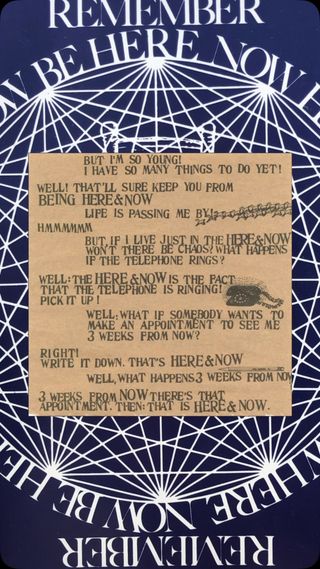 REMEMBER
NOW BE HERE NOW H
BUT I'M SO YOUNG!
I HAVE SO MANY THINGS TO DO YET!
WELL! THAT'LL SURE KEEP YOU FROM
BEING HERE & NOW
LIFE IS PASSING ME BY!
HMMMMMM
BUT, IF I LIVE JUST IN THE HERE & NOW
WON'T THERE BE CHAOS? WHAT HAPPENS
IF THE TELEPHONE RINGS?
WELL: THE HERE & NOW IS THE FACT
THAT THE TELEPHONE IS RINGING!
PICK IT UP!
WELL: WHAT IF SOMEBODY WANTS TO
MAKE AN APPOINTMENT TO SEE ME
3 WEEKS FROM NOW?
RIGHT!
WRITE IT DOWN. THAT'S HERE & NOW
WELL, WHAT HAPPENS 3 WEEKS FROM NOW
3 WEEKS FROM NOW THERE'S THAT
APPOINTMENT. THEN: THAT IS HERE & NOW.
HERE NOW BE HE
REMEMBER